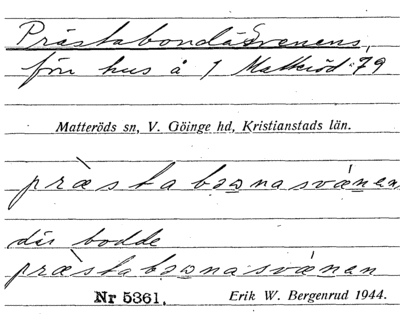 Prästabondäsvenens,
förr hus å 1 Matteröd 79
Matteröds sn, V. Göinge hd, Kristianstads län.
præstabɔɔnasvænan
där bodde
præstabɔɔnasvænan
Nr 5361. Erik W. Bergenrud 1944.